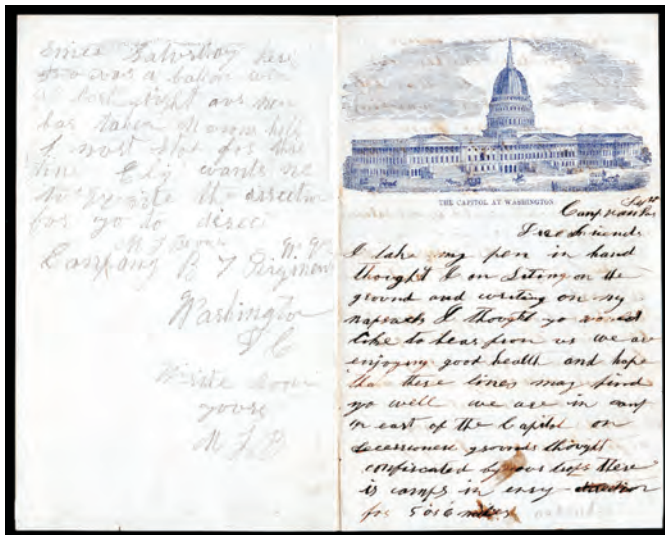 Since Saturday here
was a baloon
a last night our men
has taken
I must stop for this
time Ely wants me
to write the
for yo to direc
M J B
Company B 7 Rigimen
Washington
D C
Write soon
yours
M J B
THE CAPITOL AT WASHINGTON
Camp
Friend
I take my pen in hand
thought I on Siting on the
ground and writing on my
napsack I thought yo would
like to hear from us we are
enjoying good health and hope
tha these lines may find
yo well we are in camp
east of the Capitol on
grounds thought
confircated by our
is camps in evry
for 5 or 6